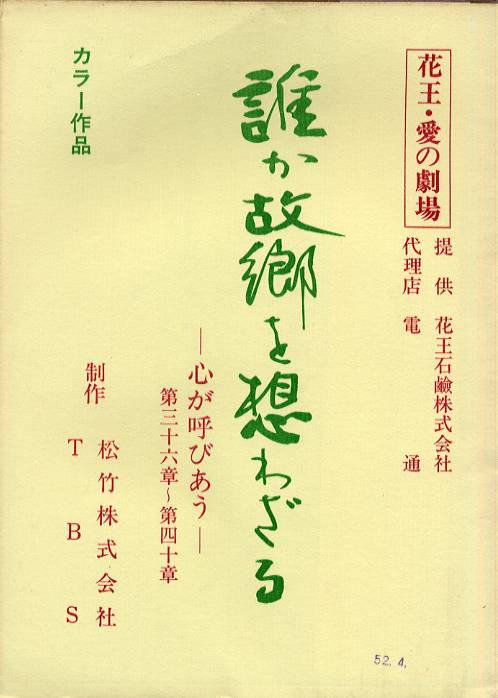 花王・愛の劇場
提供 花王石鹼株式会社
代理店 電通
誰か故郷を想わざる
―心が呼びあう―
第三十六章～第四十章
制作 松竹株式会社
TBS
カラー作品
52.4.